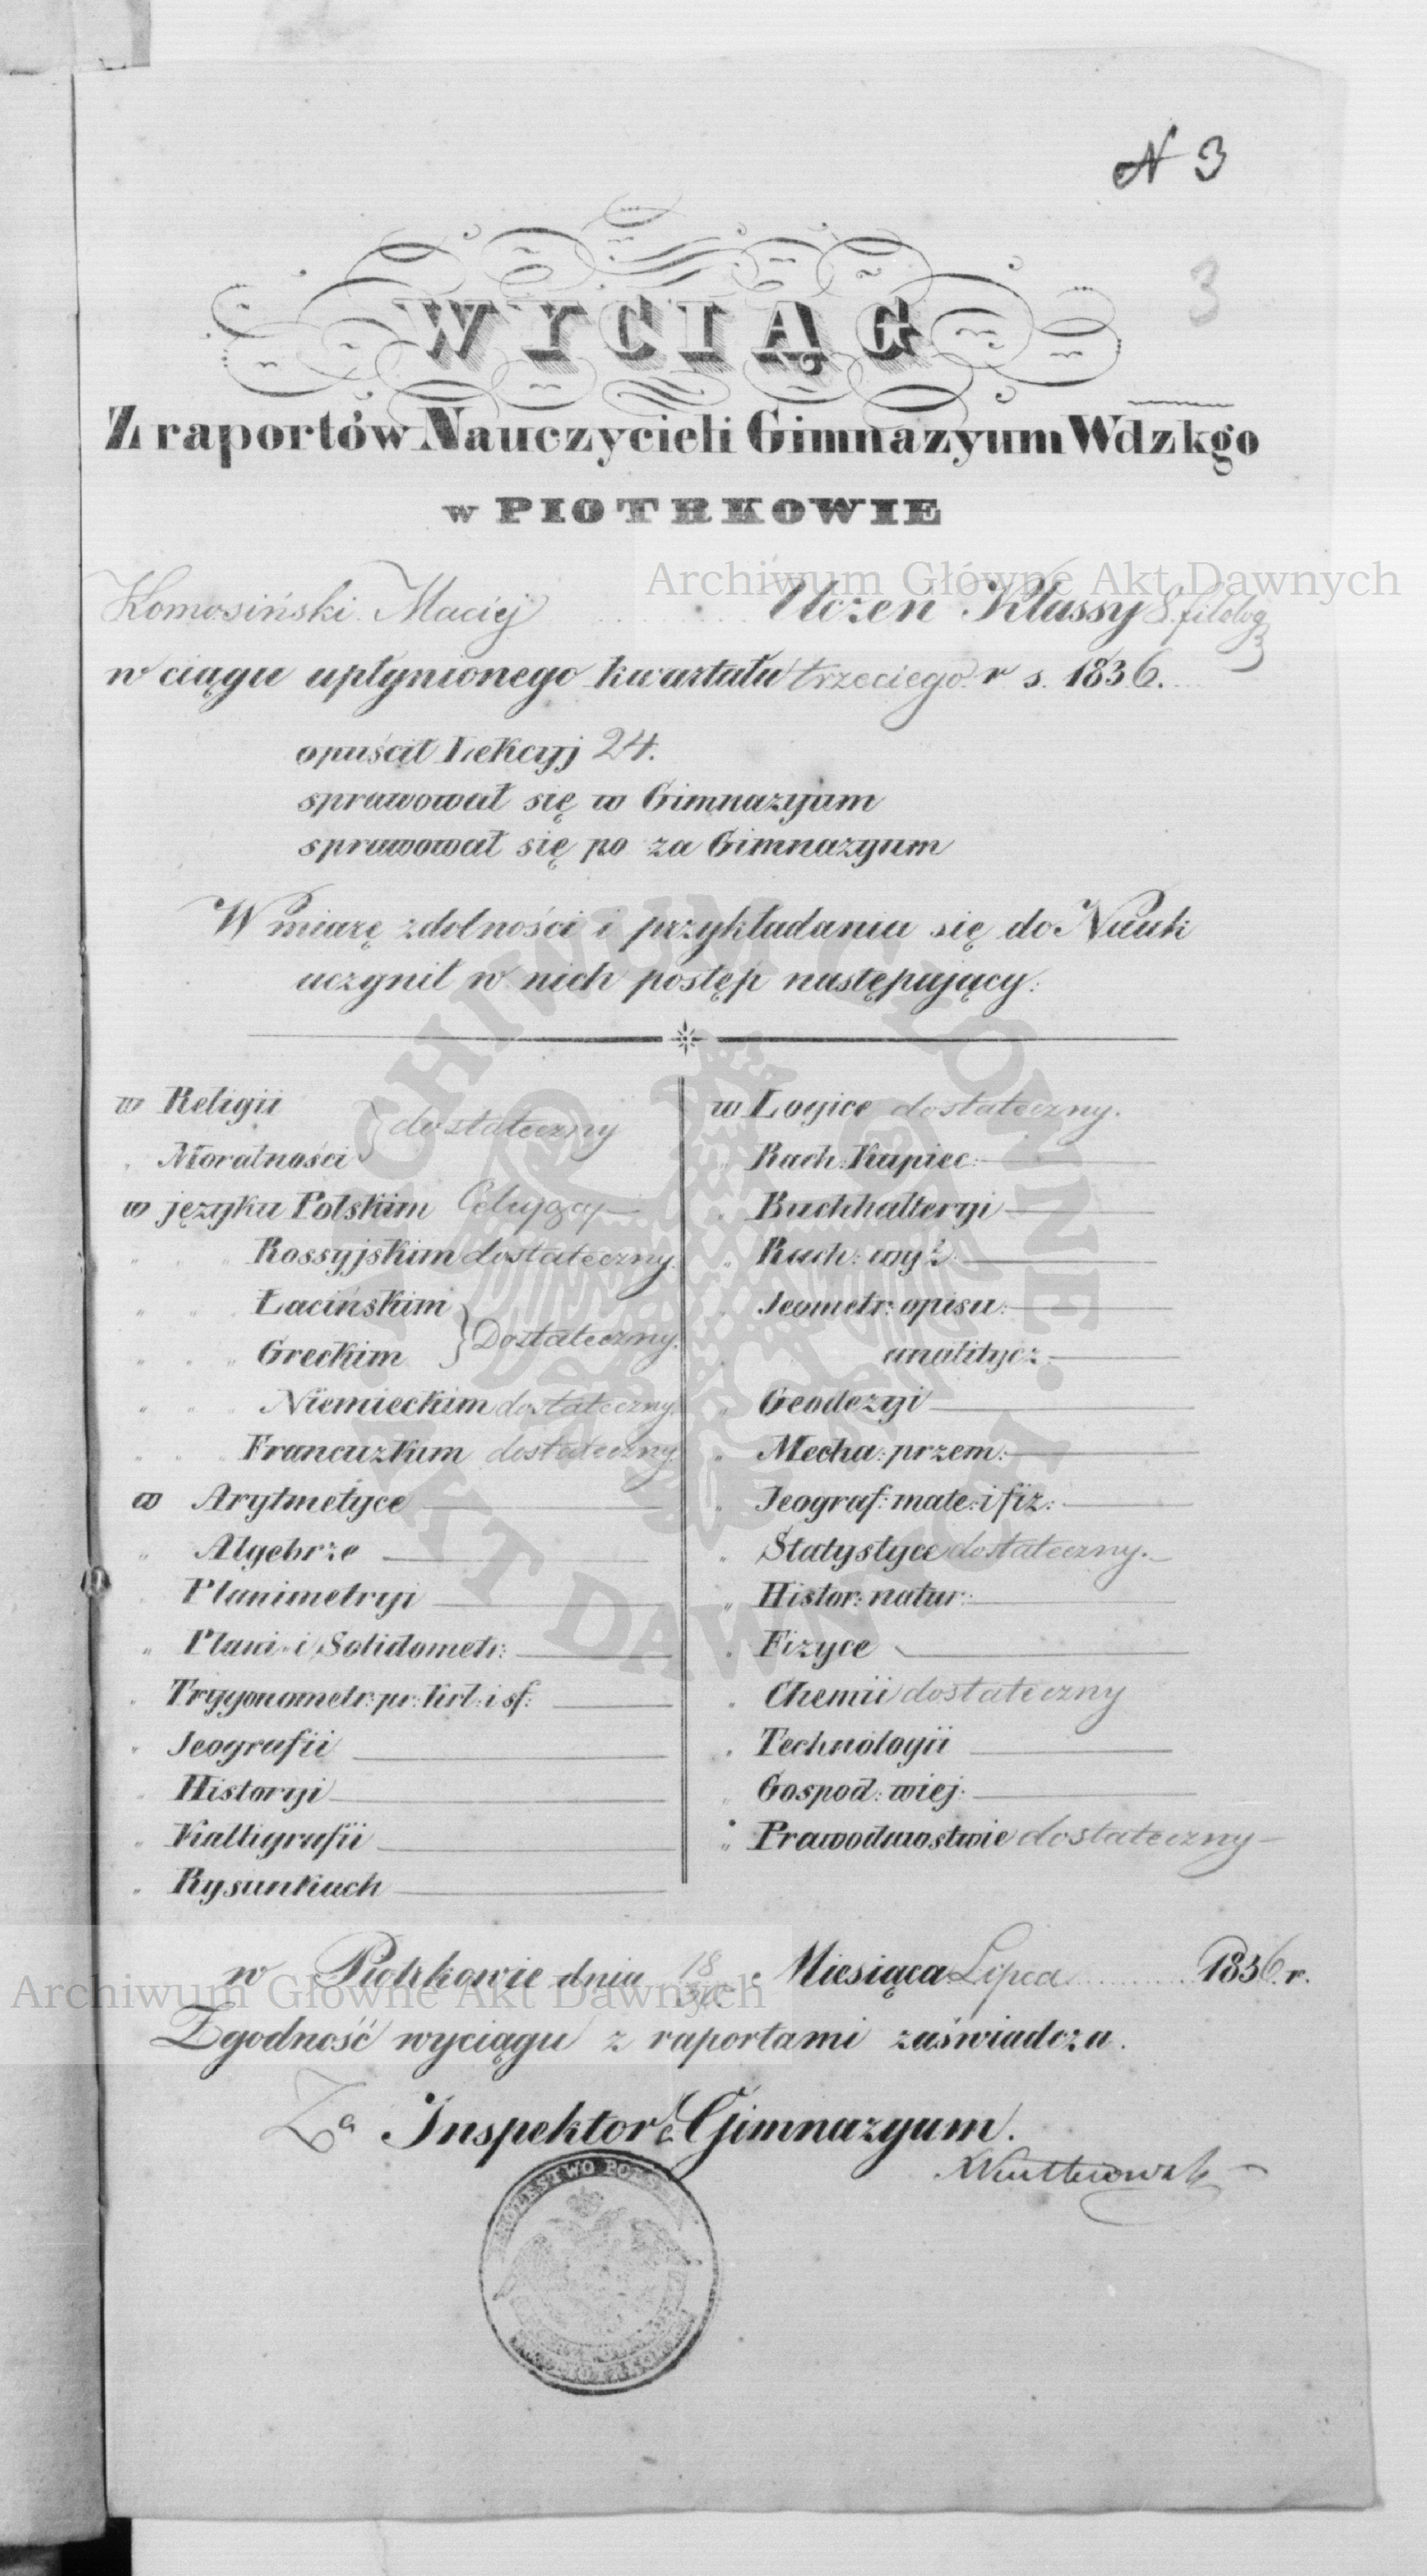 N 3
3
WYCIĄG
Z raportów Nauczycieli Gimnazyum Wdzkgo
w PIOTRKOWIE
Archiwum Główne Akt Dawnych
Komosiński Maciej Uczeń Klassy 8. filolog
w ciągu upłynionego kwartału trzeciego r s. 1836.
opuścił Lekcyj 24.
sprawował się w Gimnazyum
sprawował się po za Gimnazyum
W miarę zdolności i przykładania się do Nauk
uczynił w nich postęp następujący:
w Religii
„ Moralności } dostateczny
w języku Polskim Celujący
„ „ „ Rossyjskim dostateczny.
„ „ Łacińskim
„ „ „ Greckim } Dostateczny.
„ „ „ Niemieckim dostateczny.
„ „ „ Francuzkim dostateczny.
w Arytmetyce
„ Algebrze
„ Planimetryi
„ Plani- i Solidometr:
„ Trygonometr: pr: krl: i sf:
„ Jeografii
„ Historyi
„ Kalligrafii
„ Rysunkach
w Logice dostateczny.
„ Rach: Kupiec:
„ Buchhalteryi
„ Rach: wyż:
„ Jeometr: opisu:
„ analitycz:
„ Geodezyi
„ Mecha: przem:
„ Jeograf: mate: i fiz:
„ Statystyce dostateczny.
„ Histor: natur:
„ Fizyce
„ Chemii dostateczny
„ Technologii
„ Gospod: wiej:
„ Prawodawstwie dostateczny
ARCHIWUM GŁÓWNE AKT DAWNYCH
w Piotrkowie dnia 18/30 Miesiąca Lipca 1836 r.
Archiwum Główne Akt Dawnych
Zgodność wyciągu z raportami zaświadcza.
Za Inspektora Gimnazyum.
KRÓLESTWO POLSKIE